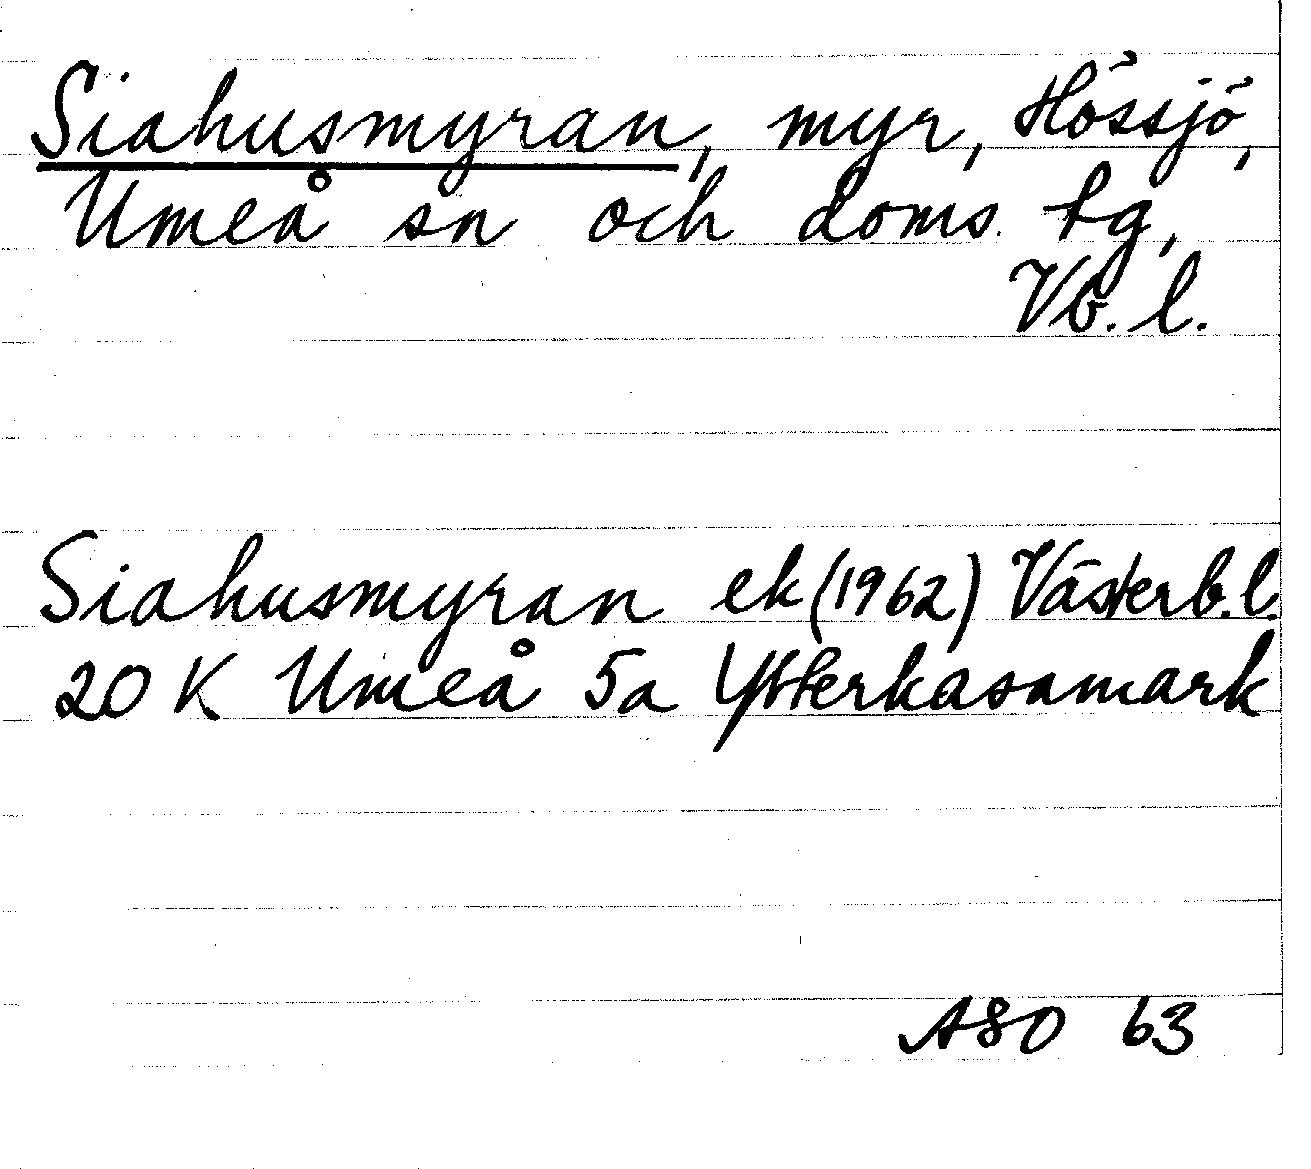 Siahusmyran, myr, Hössjö,
Umeå sn och doms. tg,
Vb. l.
Siahusmyran ek (1962) Västerb. l.
20 K Umeå 5a Ytterkasamark
ASO 63